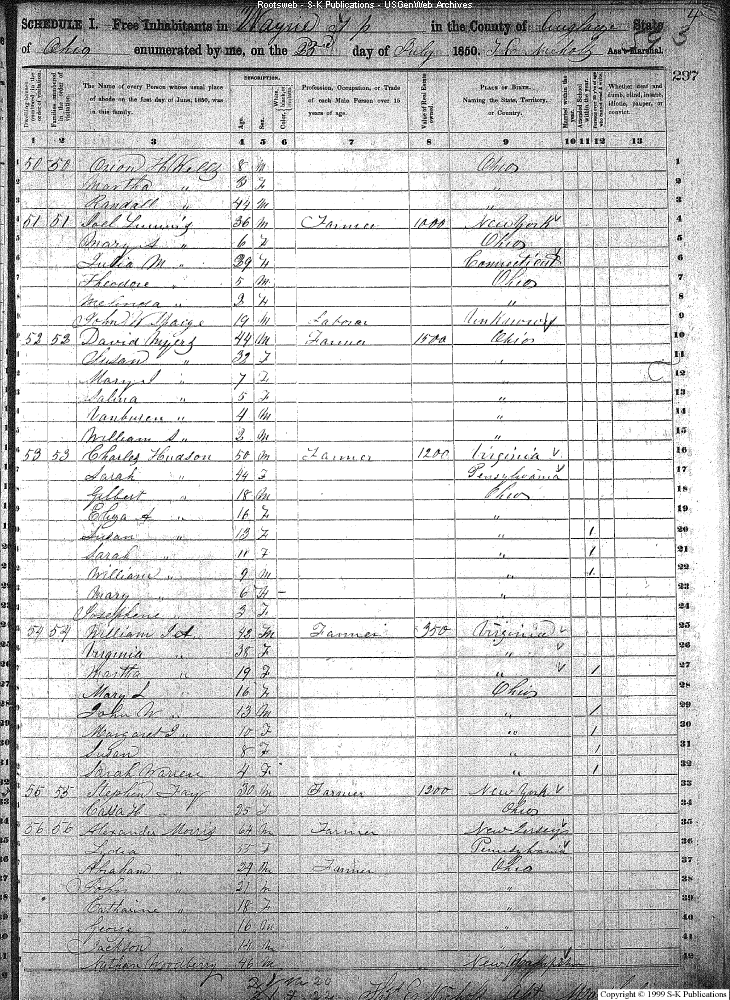 Rootsweb - S-K Publications - USGenWeb Archives
SCHEDULE I. Free Inhabitants in Wayne Tp in the County of Auglaize State
of Ohio enumerated by me, on the 23rd day of July 1850. Ass't Marshal.
297
Dwelling-houses numbered in the order of visitation.
Families numbered in the order of visitation.
The Name of every Person whose usual place of abode on the first day of June, 1850, was in this family.
DESCRIPTION.
Age.
Sex.
Color, White, black, or mulatto.
Profession, Occupation, or Trade of each Male Person over 15 years of age.
Value of Real Estate owned.
PLACE OF BIRTH. Naming the State, Territory, or Country.
Married within the year.
Attended School within the year.
Whether deaf and dumb, blind, insane, idiotic, pauper, or convict.
1 2 3 4 5 6 7 8 9 10 11 12 13
50 50 Orson H Wells 8 M Ohio 1
Martha " 3 F " 2
Randall " 44 M " 3
51 51 Joel 36 M Farmer 1000 New York 4
Mary S " 6 F Ohio 5
Julia M " 29 F Connecticut 6
Theodore " 5 M Ohio 7
Melinda " 2 F " 8
John W Spaige 19 M Laborer Unknown 9
52 52 David Myers 44 M Farmer 1500 Ohio 10
Susan " 32 F " 11
Mary J " 7 F 12
Salina " 5 F " 13
Vanburen " 4 M " 14
William S " 2 M " 15
53 53 Charles Hudson 50 M Farmer 1200 Virginia 16
Sarah " 44 F Pensylvania 17
Gilbert " 18 M Ohio 18
Eliza A " 16 F " 19
Susan " 13 F " 1 20
Sarah " 11 F " 1 21
William " 9 M " 1 22
Mary " 6 F " 23
Josephene " 3 F 24
54 54 William 42 M Farmer 350 Virginia 25
Virginia " 38 F " 26
Martha " 19 F " 1 27
Mary L " 16 F Ohio 28
John W " 13 M " 1 29
Margaret J " 10 F " 1 30
Susan " 8 F " 1 31
Sarah Warren 4 F " 1 32
55 55 Stephen Fay 30 M Farmer 1200 New York 33
Cassa H " 25 F Ohio 34
56 56 Alexander Morris 64 M Farmer New Jersey 35
Lydia " 55 F Pennsylvania 36
Abraham " 24 M Farmer Ohio 37
" 21 M " 38
Catharine " 18 F " 39
George " 16 M " 40
Jackson " 14 M " 41
Nathan Woodberry 46 M New Hampshire 42
Copyright © 1999 S-K Publications